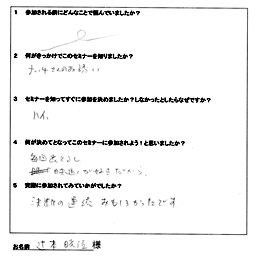 1 参加される前にどんなことで悩んでいましたか？
2 何がきっかけでこのセミナーを知りましたか？
さんのお誘い
3 セミナーを知ってすぐに参加を決めましたか？しなかったとしたらなぜですか？
ハイ、
4 何が決めてとなってこのセミナーに参加されよう！と思いましたか？
毎回
5 実際に参加されてみていかがでしたか？
決断の連続 おもしろかったです
お名前 辻本 様